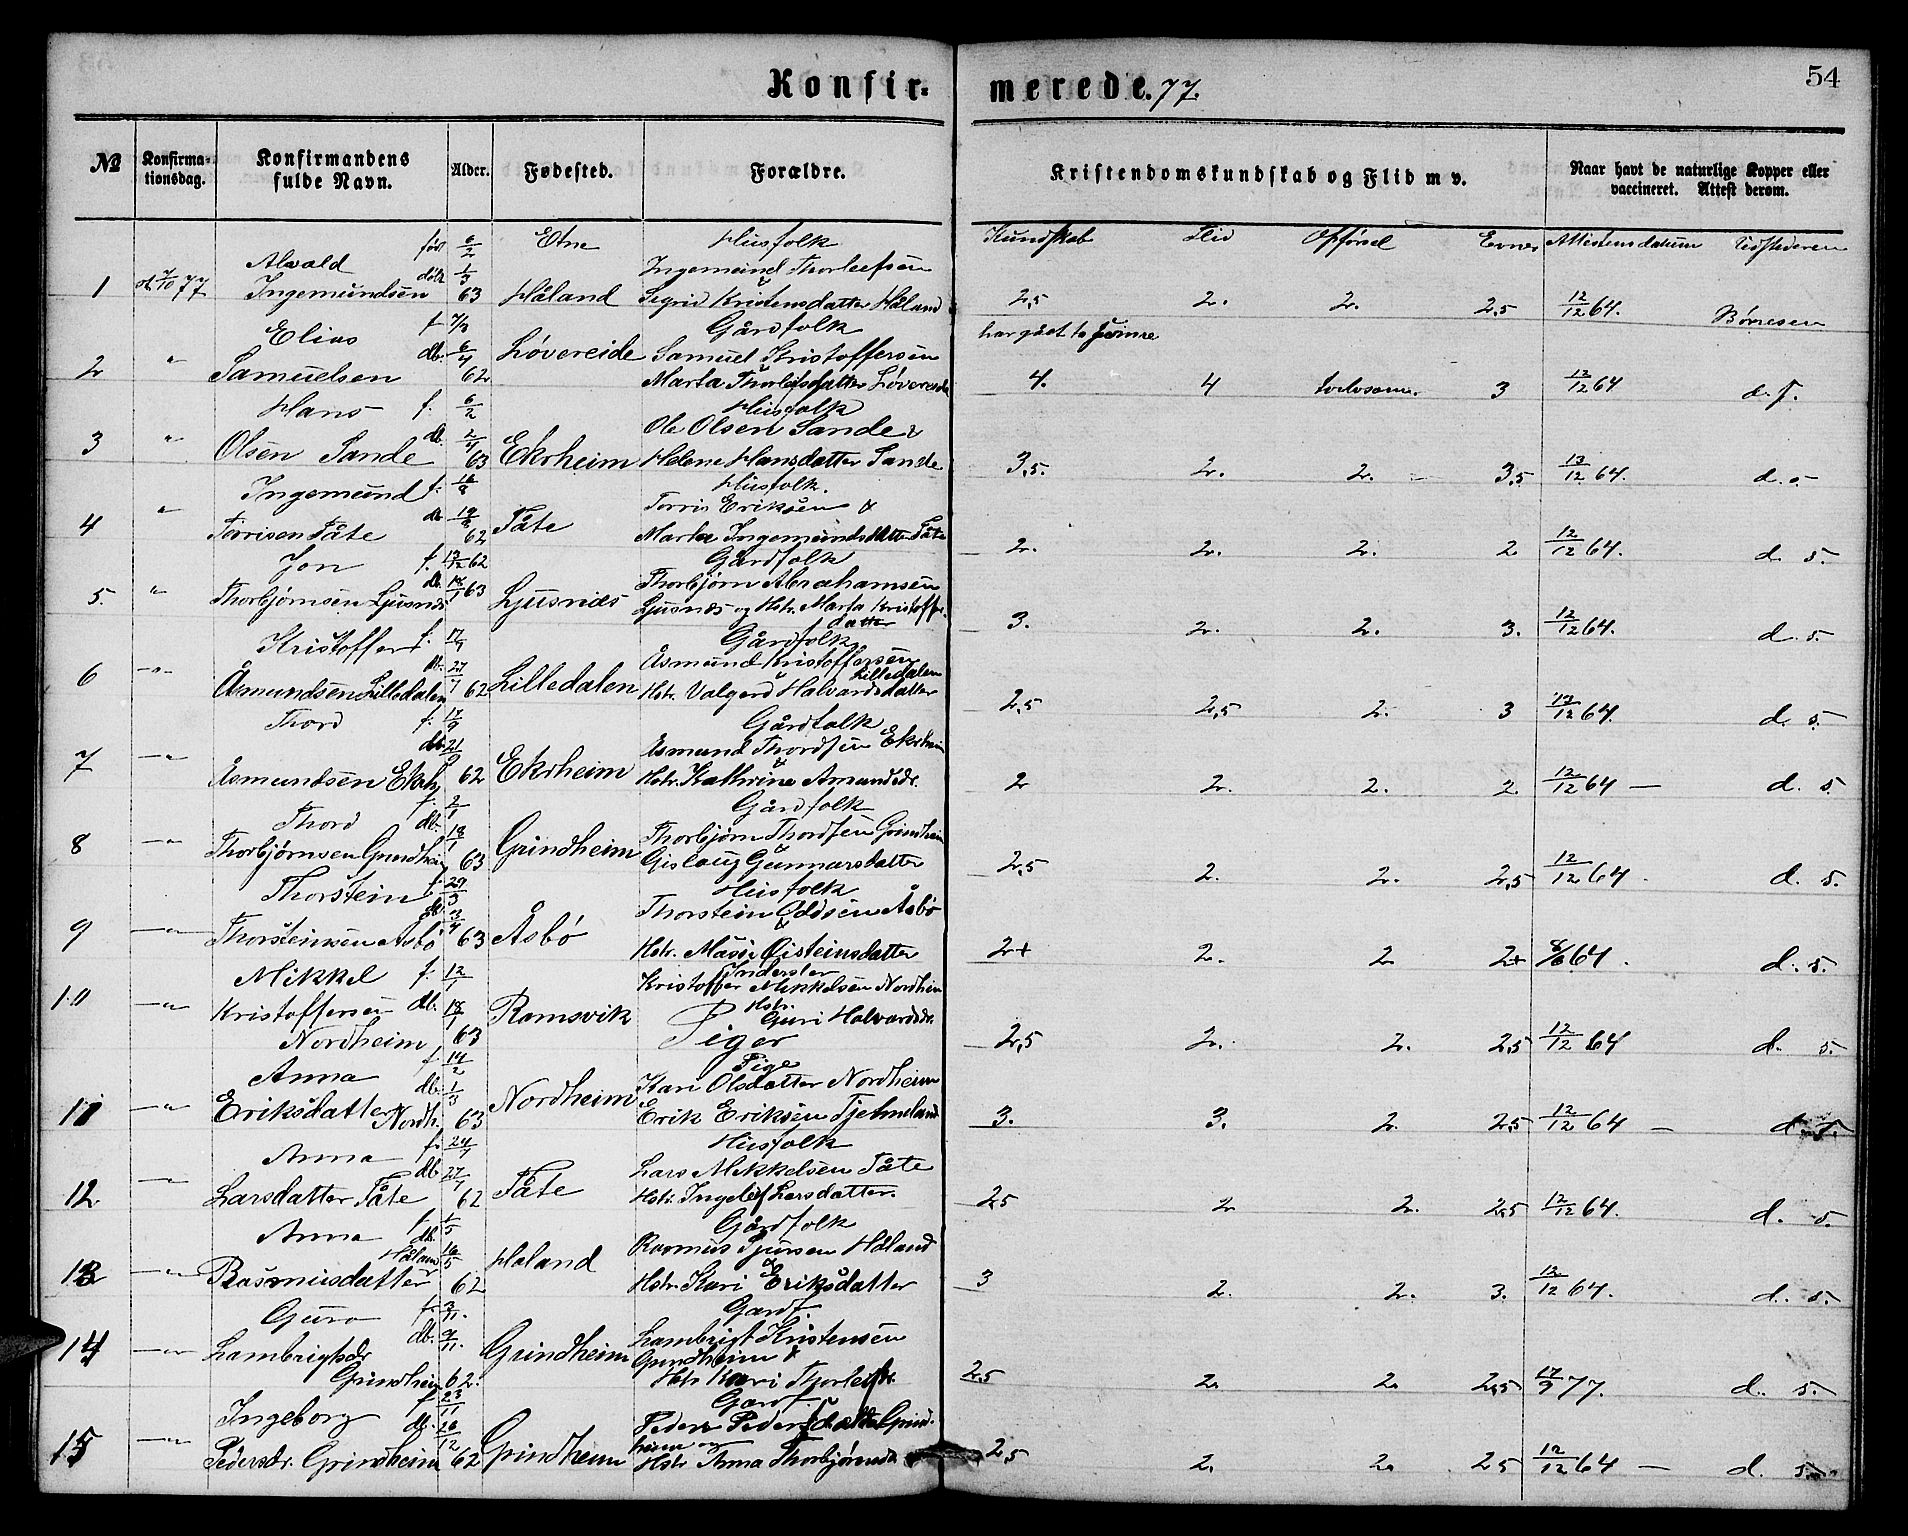 Konfirmerede. 77.
54
№
Konfirmationsdag.
Konfirmandens fulde Navn.
Alder.
Fødested.
Forældre.
Kristendomskundskab og Flid m v.
Naar havt de naturlige Kopper eller vaccineret. Attest derom.
Kundskab Flid Opførsel Evner Attestens datum Udstederen
1 7/10 77 Alvald Ingemundsen fød 6/2 døbt 1/3 63 Etne Håland Husfolk Ingemund Thorleefsen & Sigrid Kristensdatter Håland 2,5 2. 2. 2,5 12/12 64. Børresen
har gået to
2 " Elias Samuelsen f. 7/3 db. 6/4 62 Løvereide Gårdfolk Samuel Kristoffersen Marta Thorleifsdatter Løvereide 4. 4 3 12/12 64 d. s.
3 " Hans Olsen Sande f. 6/2 db. 2/4 63 Ekrheim Husfolk Ole Olsen Sande & Helene Hansdatter Sande 3,5. 2. 2. 3,5 13/12 64. d. s.
4 " Ingemund Torrisen Tåte f. 16/8 db. 19/8 62 Tåte Husfolk. Torris Eriksen & Marta Ingemundsdatter Tåte 2. 2. 2. 2 12/12 64. d. s.
5. " Jon Thorbjørnsen Ljusnes f. 12/12 62 db. 18/1 63 Ljusnes Gårdfolk Thorbjørn Abrahamsen Ljusnes og Hstr. Marta Kristoffersdatter 3. 2. 2. 3. 12/12 64. d. s.
6 " Kristoffer Åsmundsen Lilledalen f. 17/7 db. 27/7 62 Lilledalen Gårdfolk Åsmund Kristoffersen Lilledalen & Hstr. Valgerd Halvardsdatter 2,5 2,5 2. 3 12/12 64. d. s.
7 " Thord Åsmundsen Ekrh. f. 17/9 db. 21/9 62 Ekrheim Gårdfolk Åsmund Thordsen Ekrheim & Hstr. Kathrine Amundsdr. 2 2. 2. 2 12/12 64 — d. s.
8 " Thord Thorbjørnsen Grindheim f. 2/1 db. 18/1 63 Grindheim Gårdfolk Thorbjørn Thordsen Grindheim Gislaug Gunnarsdatter 2,5 2. 2. 2,5 12/12 64. d. s.
9 " Thorstein Thorsteinsen Åsbø f. 29/3 db. 3/4 63 Åsbø Husfolk Thorstein Oddsen Åsbø & Hstr. Mari Øisteinsdatter 2+ 2. 2 2+ 8/6 64. d. s.
10 " Mikkel Kristoffersen Nordheim f. 12/1 db. 18/1 63 Ramsvik Inderster Kristoffer Mikkelsen Nordheim Hstr. Guri Halvardsdr. 2,5 2. 2. 2,5 12/12 64 d. s.
Piger
11 " Anna Eriksdatter Nordh. f. 14/2 db. 1/3 63 Nordheim Pige Kari Olsdatter Nordheim Erik Eriksen Tjelmeland 3. 3. 2. 2,5 12/12 64 — d. s.
12 " Anna Larsdatter Tåte f. 24/7 db. 27/7 62 Tåte Husfolk Lars Mikkelsen Tåte Hstr. Ingeleif Larsdatter. 2,5 2 2. 2,5 12/12 64. d. s.
13 " Anna Rasmusdatter Håland f. 1/5 db. 16/5 62 Haland Gårdfolk Rasmus Sjursen Håland & Hstr. Kari Eriksdatter 3 2. 2. 3. 12/12 64. d. s.
14 " Guro Lambrigtsdr. Grindheim f. 3/11. db. 9/11. 62. Grindheim Gardf. Lambrigt Kristensen Grindheim & Hstr Kari Thorleifsdr. 2,5 2. 2. 2,5 17/9 77. d. s.
15 " Ingeborg Pedersdr. Grindheim f. 23/11 db. 26/12 62 Grindheim Gardf. Peder Grindheim og Hstr Anna Thorbjørnsd. 2,5 2. 2. 2,5 12/12 64 — d. s.